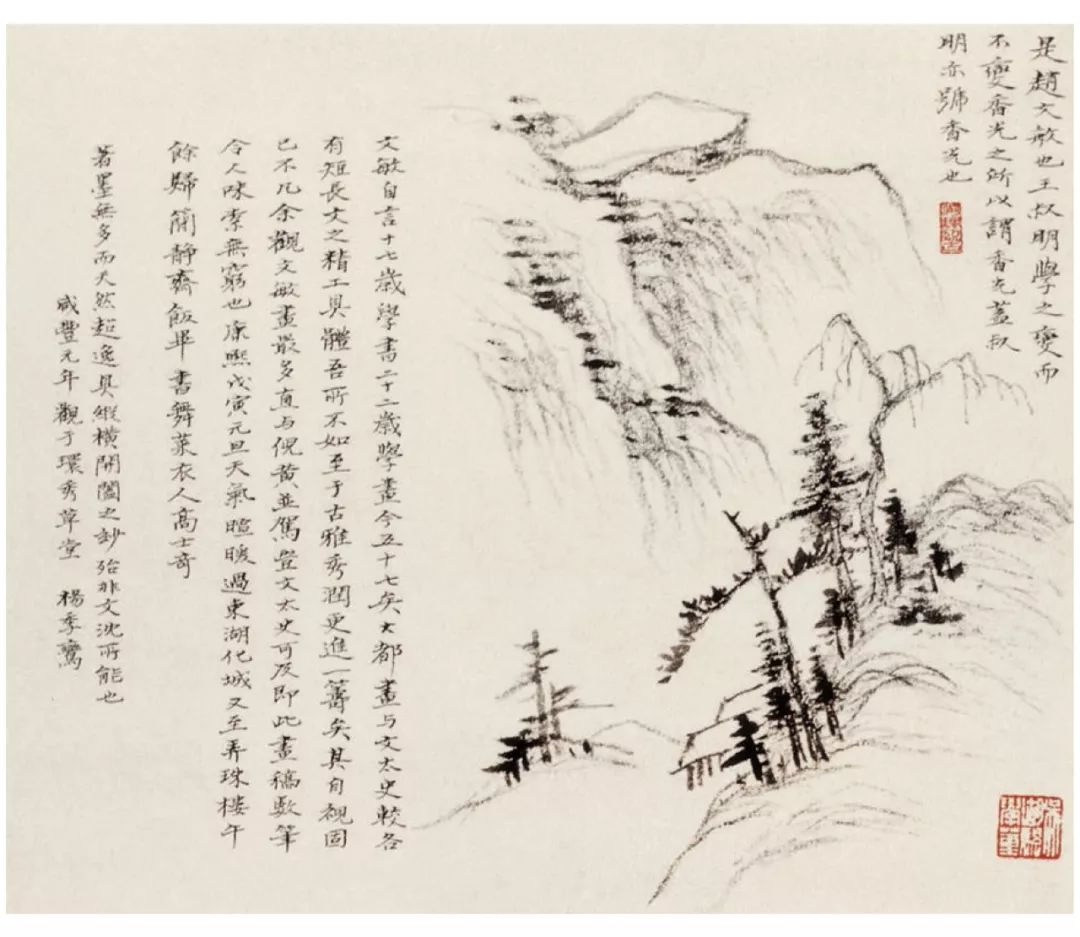 是趙文敏也王叔明學之變而
不變香光之所以謂香光蓋叔
明亦號香光也
文敏自言十七歲學書二十二歲學畫今五十七矣大都畫与文太史較各
有短長文之精工具體吾所不如至于古雅秀潤更進一籌矣其自視固
已不凡余觀文敏畫最多直与倪黃並駕豈文太史可及即此畫稿數筆
令人味索無窮也康熙戊寅元旦天氣暄暖過東湖化城又至弄珠樓午
餘歸簡靜齋飯畢書舞菜衣人高士奇
著墨無多而天然超逸具縱橫開闔之妙殆非文沈所能也
咸豐元年觀于環秀草堂 楊季鸞